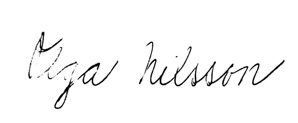 Olga Nilsson